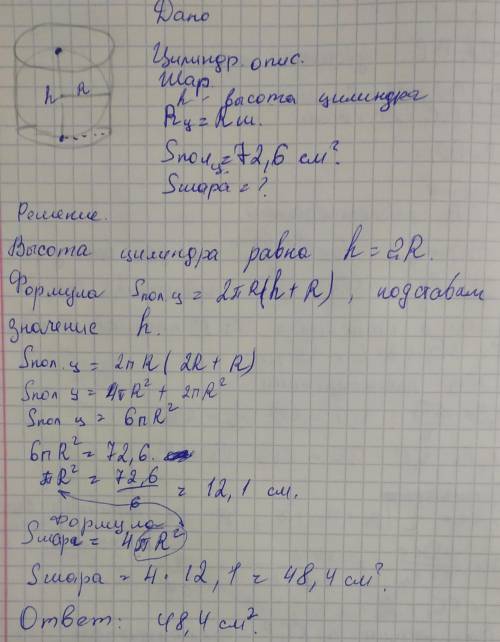 Дано
Цилиндр опис.
Шар.
h - высота цилиндра
Rц = Rш.
Sпол ц = 72,6 см².
Sшара = ?
h R
Решение.
Высота цилиндра равна h = 2R.
Формула Sпол.ц = 2πR(h + R), подставам
значение h.
Sпол. ц = 2πR(2R + R)
Sпол ц = 4πR² + 2πR²
Sпол ц = 6πR²
6πR² = 72,6.
πR² = 72,6/6 = 12,1 см.
Формула
Sшара = 4πR²
Sшара = 4 · 12,1 = 48,4 см².
Ответ: 48,4 см².